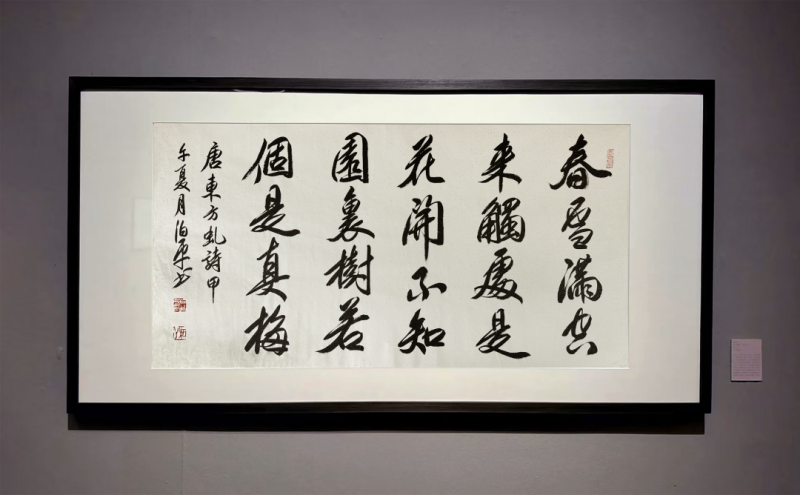 春雪滿空
来觸處是
花開不知
園裏樹若
個是真梅
唐東方虬詩甲
午夏月泊书